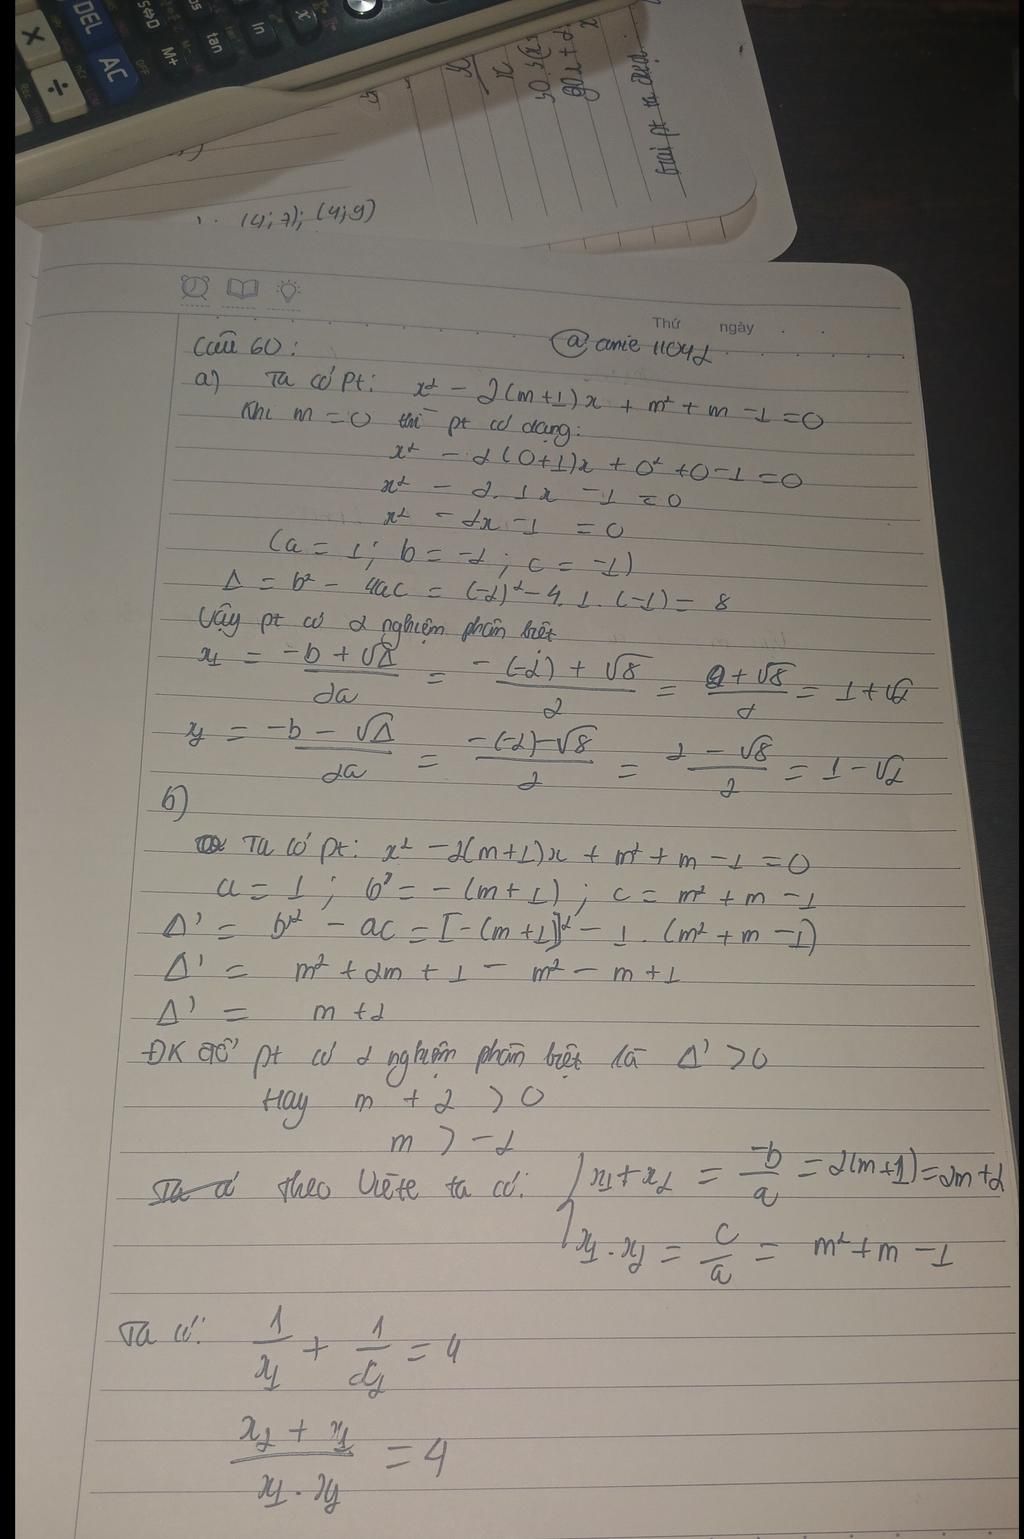 DEL
AC
S⇔D
M+
tan
ln
OFF
×
÷
(4;7); (4;9)
Giải pt ta được
Thứ ngày
@ anie 11042
Câu 60:
a) Ta có pt: x² - 2(m+1)x + m² + m - 1 = 0
Khi m = 0 thì pt có dạng:
x² - 2(0+1)x + 0² + 0 - 1 = 0
x² - 2.1x - 1 = 0
x² - 2x - 1 = 0
(a = 1; b = -2; c = -1)
Δ = b² - 4ac = (-2)² - 4.1.(-1) = 8
Vậy pt có 2 nghiệm phân biệt
x₁ = (-b + √Δ)/2a = (-(-2) + √8)/2 = (2 + √8)/2 = 1 + √2
x₂ = (-b - √Δ)/2a = (-(-2) - √8)/2 = (2 - √8)/2 = 1 - √2
b)
Ta có pt: x² - 2(m+1)x + m² + m - 1 = 0
a = 1; b' = -(m+1); c = m² + m - 1
Δ' = b'² - ac = [-(m+1)]² - 1.(m² + m - 1)
Δ' = m² + 2m + 1 - m² - m + 1
Δ' = m + 2
ĐK để pt có 2 nghiệm phân biệt là Δ' > 0
Hay m + 2 > 0
m > -2
Theo Viète ta có: { x₁ + x₂ = -b/a = 2(m+1) = 2m + 2
x₁ . x₂ = c/a = m² + m - 1
Ta có: 1/x₁ + 1/x₂ = 4
(x₂ + x₁)/(x₁ . x₂) = 4